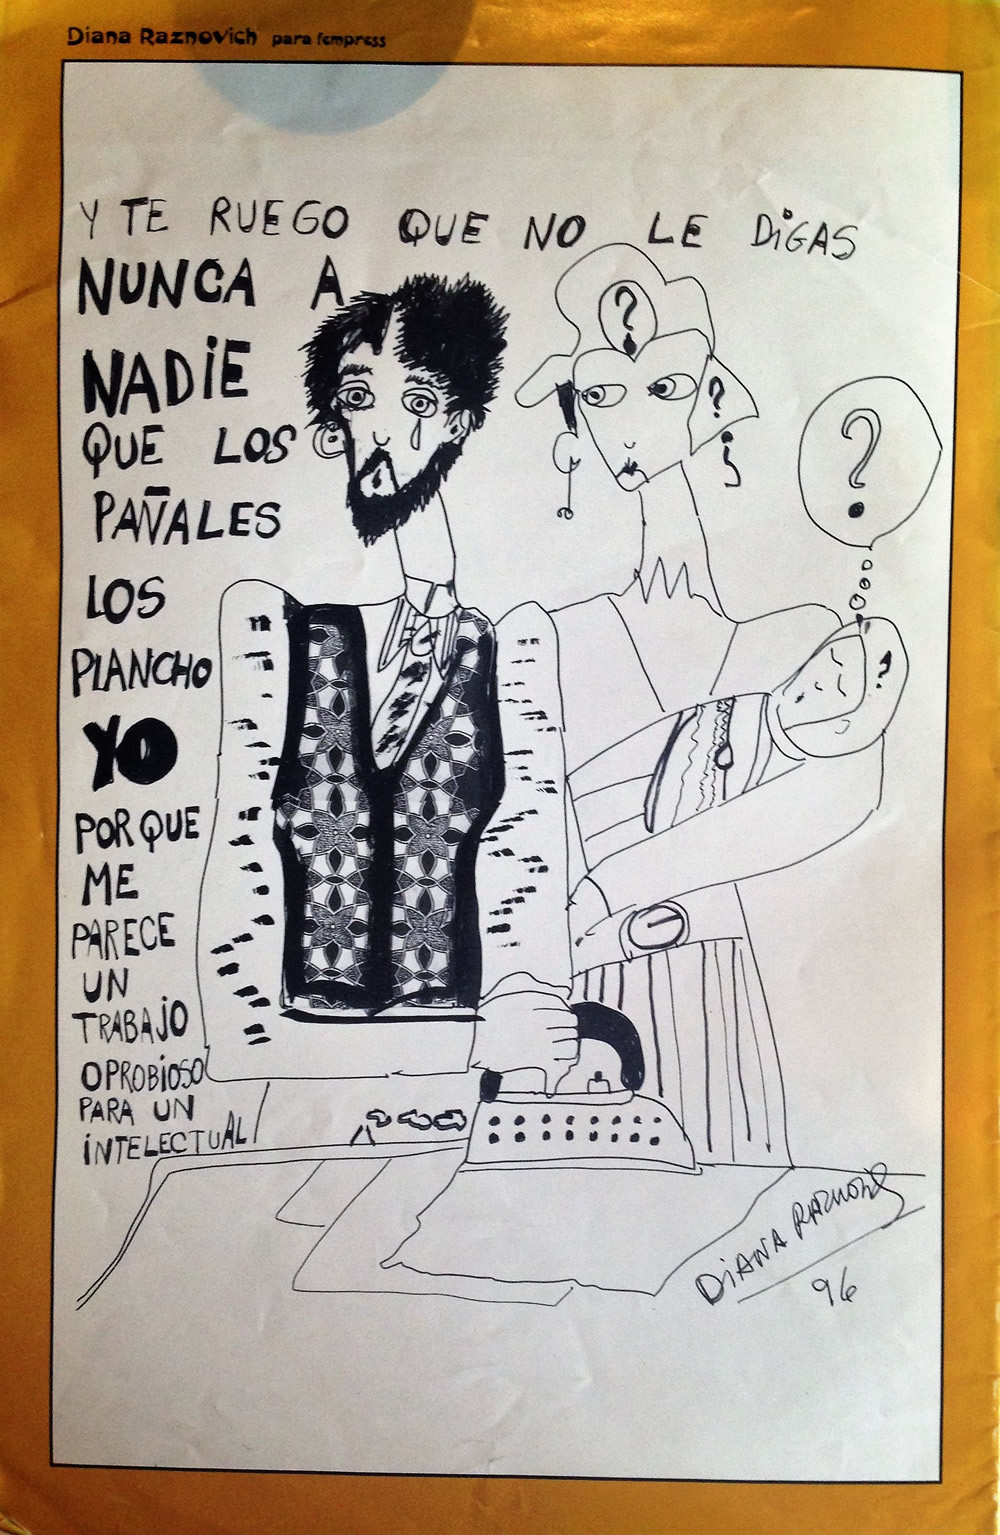 Diana Raznovich para fempress
Y TE RUEGO QUE NO LE DiGAS
NUNCA A
NADiE
QUE LOS
PAÑALES
LOS
PLANCHO
YO
PORQUE
ME
PARECE
UN
TRABAJO
OPROBiOSO
PARA UN
iNTELECTUAL
?
?
?
?
DiANA RAZNOViCH
96